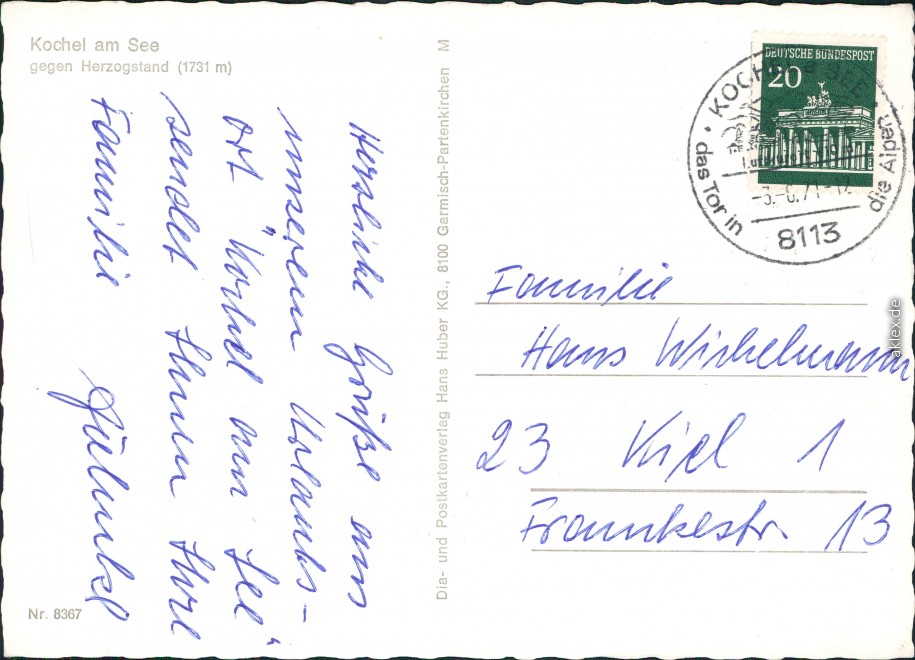 Kochel am See
gegen Herzogstand (1731 m)
Herzliche Grüße aus
unserem Urlaubs-
ort "Kochel am See"
sendet Ihnen Ihre
Familie
Nr. 8367
Dia- und Postkartenverlag Hans Huber KG., 8100 Garmisch-Partenkirchen M
DEUTSCHE BUNDESPOST
20
KOCHEL a SEE
das Tor in die Alpen
Luftkurort
8113
Familie
Hans Wichelmann
23 Kiel 1
Frankestr. 13
aklex.de